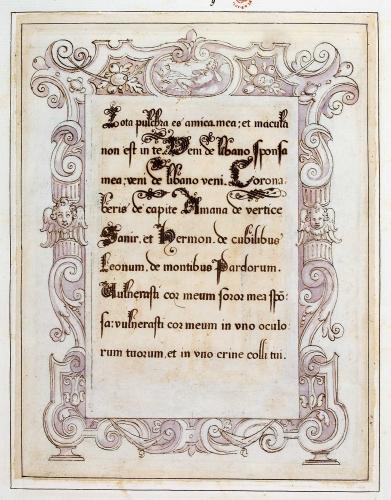 Tota pulchra es amica mea; et macula
non est in te. Veni de libano sponsa
mea; veni de libano veni. Corona-
beris de capite Amana de vertice
Sanir, et Hermon. de cubilibus
Leonum, de montibus Pardorum.
Vulnerasti cor meum soror mea spõ-
sa: vulnerasti cor meum in vno oculo
rum tuorum, et in vno crine colli tui.